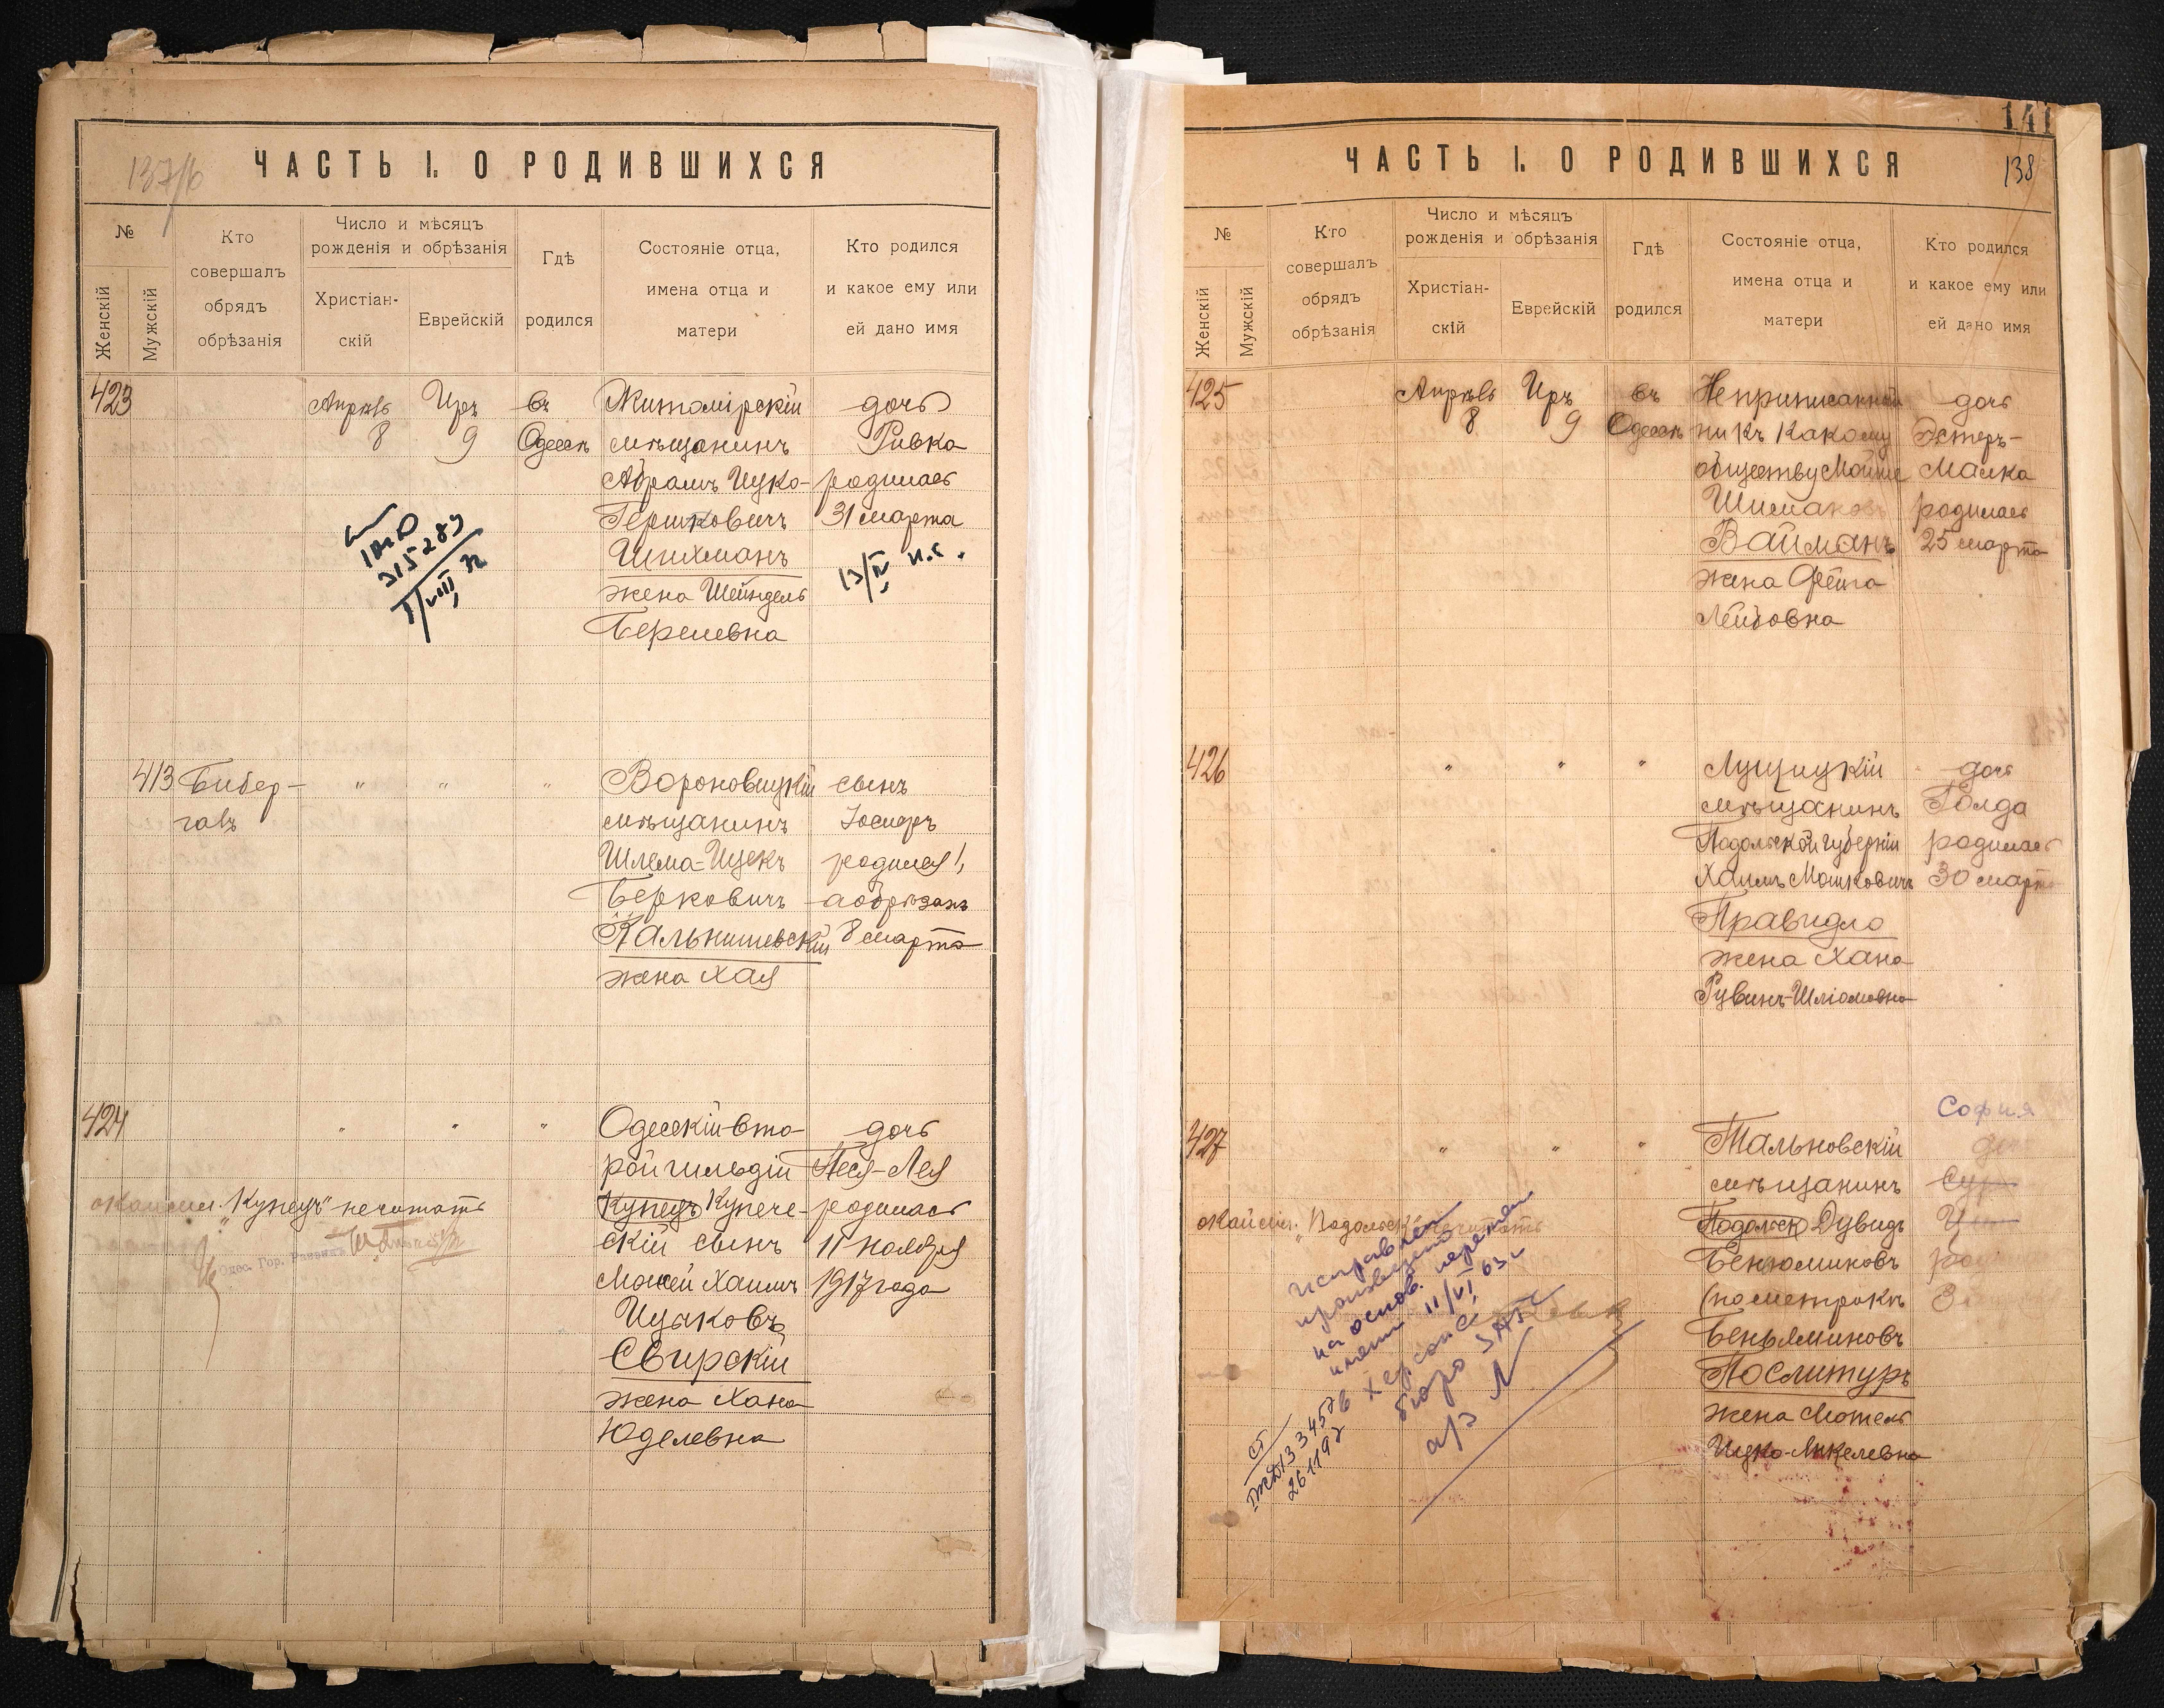 137/б
ЧАСТЬ I. О РОДИВШИХСЯ
№
Женскій
Мужскій
Кто
совершалъ
обрядъ
обрѣзанія
Число и мѣсяцъ
рожденія и обрѣзанія
Христіан-
скій
Еврейскій
Гдѣ
родился
Состояніе отца,
имена отца и
матери
Кто родился
и какое ему или
ей дано имя
423
Апрѣль
8
Иръ
9
въ
Одессѣ
Житомірскій
мѣщанинъ
Абрамъ Ицко-
Гершковичъ
Шихманъ
жена Шейндель
Берелевна
дочь
Ривка
родилась
31 марта
13/IV н.с.
315289
413
Бибер-
галъ
"
"
"
Вороновицкій
мѣщанинъ
Шлема-Ицекъ
Берковичъ
Кальнишевскій
жена Хая
сынъ
Іосифъ
родился 1,
а обрѣзанъ
8 марта
424
"
"
"
Одесскій вто-
рой гильдіи
Купецъ Купече-
скій сынъ
Мошей Хаимъ
Ицаковъ
Свирскій
жена Хана
Юделевна
дочь
Песя-Лея
родилась
11 ноября
1917 года
окаймл. "Купецъ" нечитать
Одес. Гор. Раввинъ
141
138
ЧАСТЬ I. О РОДИВШИХСЯ
№
Женскій
Мужскій
Кто
совершалъ
обрядъ
обрѣзанія
Число и мѣсяцъ
рожденія и обрѣзанія
Христіан-
скій
Еврейскій
Гдѣ
родился
Состояніе отца,
имена отца и
матери
Кто родился
и какое ему или
ей дано имя
425
Апрѣль
8
Иръ
9
въ
Одессѣ
Неприписанный
ни къ какому
обществу Мойше
Шимаковъ
Вайманъ
жена Фейга
Лейбовна
дочь
Эстеръ-
Малка
родилась
25 марта
426
"
"
"
Лущицкій
мѣщанинъ
Подольской губерніи
Хаимъ Мошковичъ
Правидло
жена Хана
Рувинъ-Шліомовна
дочь
Голда
родилась
30 марта
427
"
"
"
Тальновскій
мѣщанинъ
Подольск Дувидъ
Бенюминовъ
(по метрикѣ
Беньяминовъ
Послитуръ
жена Мотель
Ицко-Анкелевна
София
окаймл. "Подольск" нечитать
Исправлен
произведено
на основ. перемен
имени 11/VI 63 г
Херсонс
бюро ЗАГС
а/з N